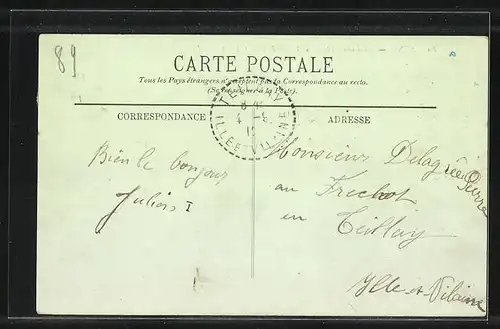 89
CARTE POSTALE
Tous les Pays étrangers n'acceptent pas la Correspondance au recto.
(Se renseigner à la Poste).
CORRESPONDANCE
ADRESSE
TEILLAY
8
4 -8
ILLE-ET-VILAINE
Bien le bonjour
Monsieur Delagrée Pierre
au Frechot
en Teillay
Ille-et-Vilaine